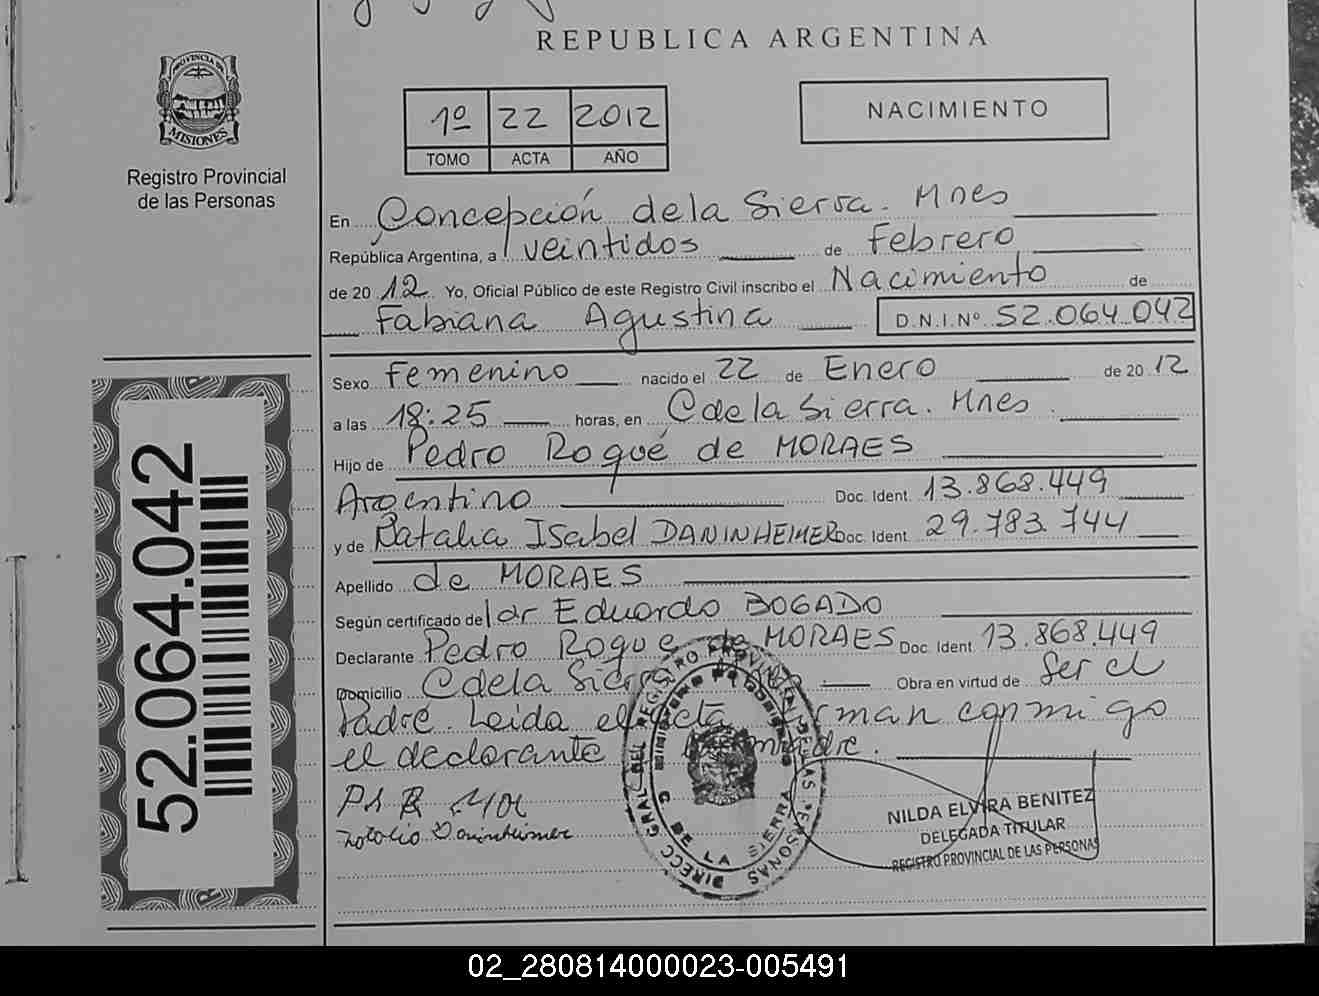 REPUBLICA ARGENTINA
PROVINCIA DE
MISIONES
Registro Provincial
de las Personas
1º 22 2012
TOMO ACTA AÑO
NACIMIENTO
En Concepción de la Sierra. Mnes
República Argentina, a veintidos de Febrero
de 20 12 Yo, Oficial Público de este Registro Civil inscribo el Nacimiento de
Fabiana Agustina D.N.I.Nº 52.064.042
Sexo femenino nacido el 22 de Enero de 20 12
a las 18:25 horas, en C de la Sierra. Mnes
Hijo de Pedro Roqué de MORAES
Argentino Doc. Ident. 13.868.449
y de Natalia Isabel DANINHEIMER Doc. Ident. 29.783.744
Apellido de MORAES
Según certificado del dr Eduardo BOGADO
Declarante Pedro Roque de MORAES Doc. Ident. 13.868.449
Domicilio C de la Sierra Obra en virtud de Ser el
Padre. Leida el acta firman conmigo
el declarante madre.
52.064.042
DIRECC GRAL DEL REGISTRO PROVINCIAL DE LAS PERSONAS
MINISTERIO DE GOBIERNO
C DE LA SIERRA
NILDA ELVIRA BENITEZ
DELEGADA TITULAR
REGISTRO PROVINCIAL DE LAS PERSONAS
02_280814000023-005491